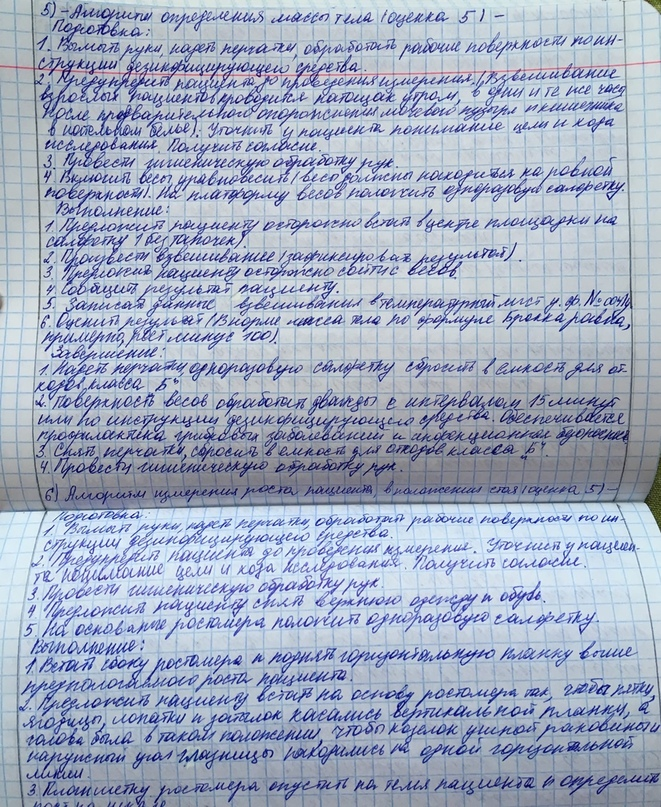 5) - Алгоритм определения массы тела (оценка 5) -
Подготовка:
1. Вымыть руки, надеть перчатки, обработать рабочие поверхности по ин-
струкции дезинфицирующего средства.
2. Предупредить пациента до проведения измерения. (Взвешивание
взрослых пациентов проводится натощак утром, в одни и те же часы
после предварительного опорожнения мочевого пузыря и кишечника
в нательном белье). Уточнить у пациента понимание цели и хода
исследования. Получить согласие.
3. Провести гигиеническую обработку рук.
4. Включить весы, уравновесить (весы должны находится на ровной
поверхности). На платформу весов положить одноразовую салфетку.
Выполнение:
1. Предложить пациенту осторожно встать в центре площадки на
салфетку (без тапочек).
2. Произвести взвешивание (зафиксировать результат).
3. Предложить пациенту осторожно сойти с весов.
4. Сообщить результат пациенту.
5. Записать данные взвешивания в температурный лист у. ф. № 004/у
6. Оценить результат (В норме масса тела по формуле Брокка равна,
примерно, рост минус 100).
Завершение:
1. Надеть перчатки, одноразовую салфетку сбросить в емкость для от-
ходов класса „Б“
2. Поверхность весов обработать дважды с интервалом 15 минут
или по инструкции дезинфицирующего средства. Обеспечивается
профилактика грибковых заболеваний и инфекционная
3. Снять перчатки, сбросить в емкость для отходов класса „Б“.
4. Провести гигиеническую обработку рук.
6) Алгоритм измерения роста пациента, в положении стоя (оценка 5) -
Подготовка:
1. Вымыть руки, надеть перчатки, обработать рабочие поверхности по ин-
струкции дезинфицирующего средства.
2. Предупредить пациента до проведения измерения. Уточнить у пациен-
та понимание цели и хода исследования. Получить согласие.
3. Провести гигиеническую обработку рук.
4 Предложить пациенту снять верхнюю одежду и обувь.
5. На основание ростомера положить одноразовую салфетку.
Выполнение:
1. Встать сбоку ростомера и поднять горизонтальную планку выше
предполагаемого роста пациента.
2. Предложить пациенту встать на основу ростомера так, чтобы пятки,
ягодицы, лопатки и затылок касались вертикальной планки, а
голова была в таком положении, чтобы козелок ушной раковины и
наружный угол глазницы находились на одной горизонтальной
линии.
3. Планшетку ростомера опустить на темя пациента и определить
рост по шкале